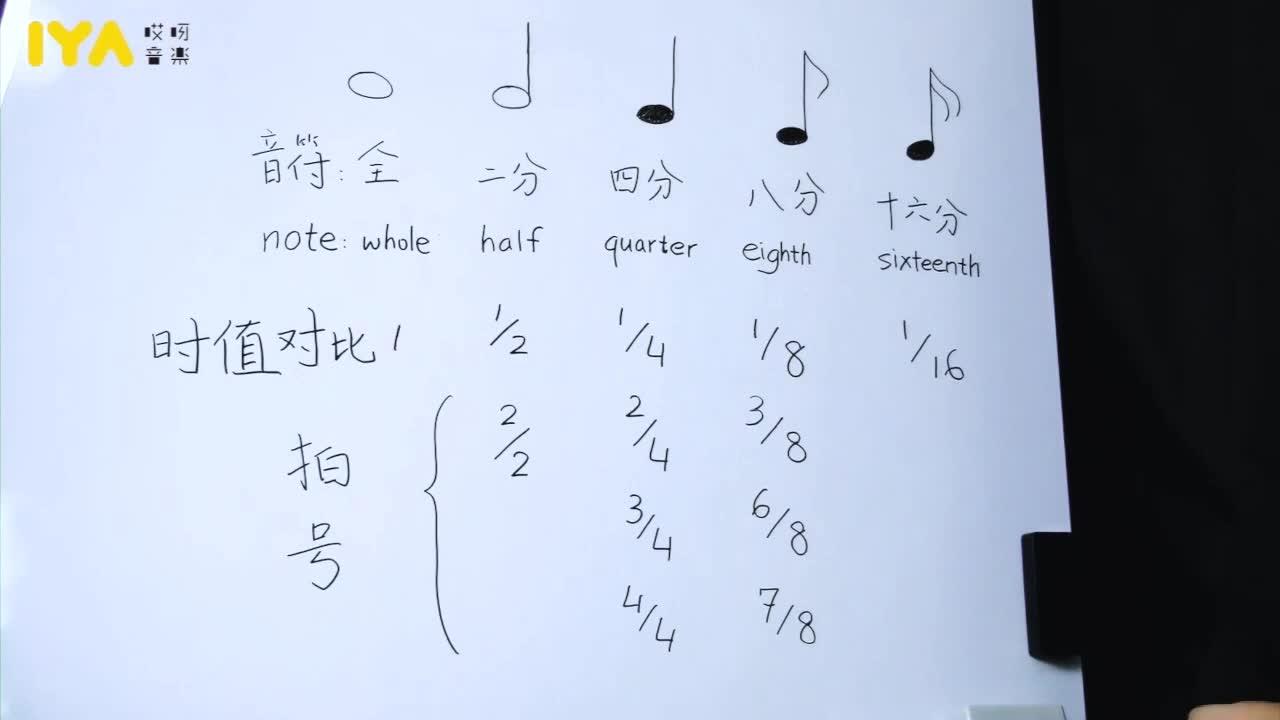 IYA 哎呀
音楽
音符: 全 二分 四分 八分 十六分
note: whole half quarter eighth sixteenth
时值对比 1 1/2 1/4 1/8 1/16
拍号 2/2 2/4 3/8
3/4 6/8
4/4 7/8